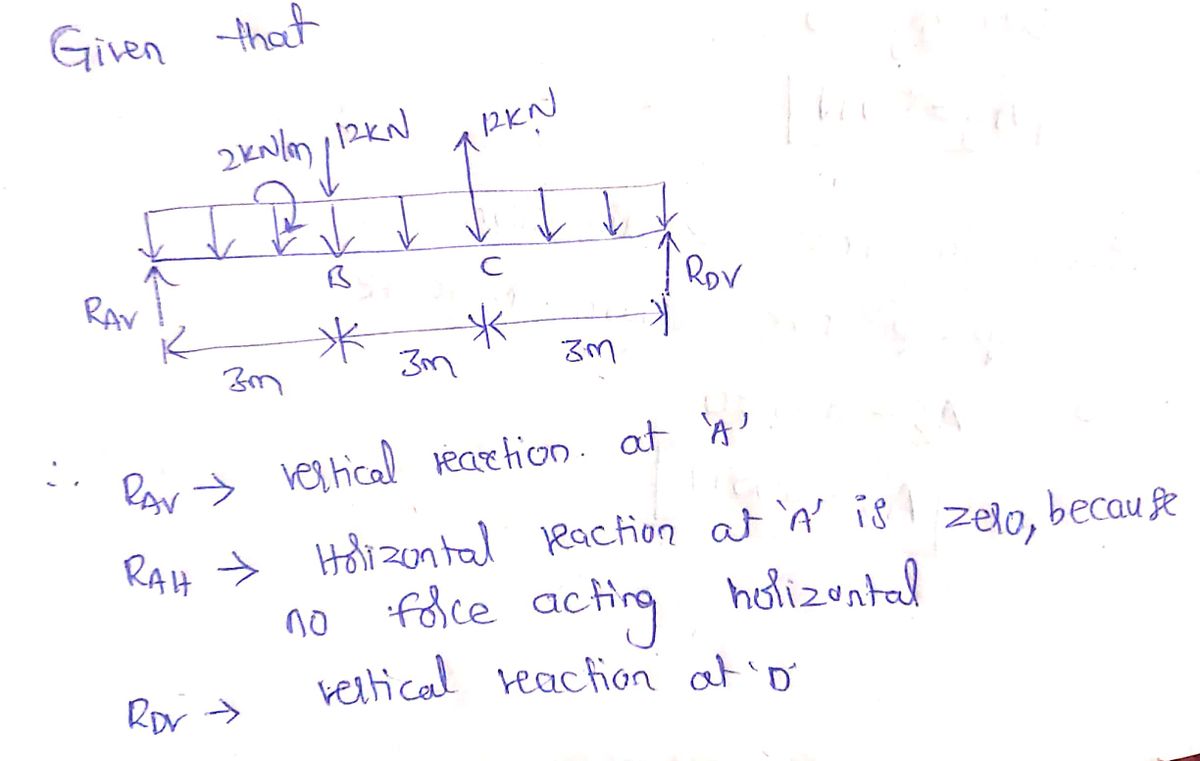 Given that
2KN/m 12KN 12KN
B C
RAV RDV
3m 3m 3m
∴ RAV → vertical reaction. at 'A'
RAH → Horizontal reaction at 'A' is zero, because
no force acting horizontal
RDV → vertical reaction at 'D'